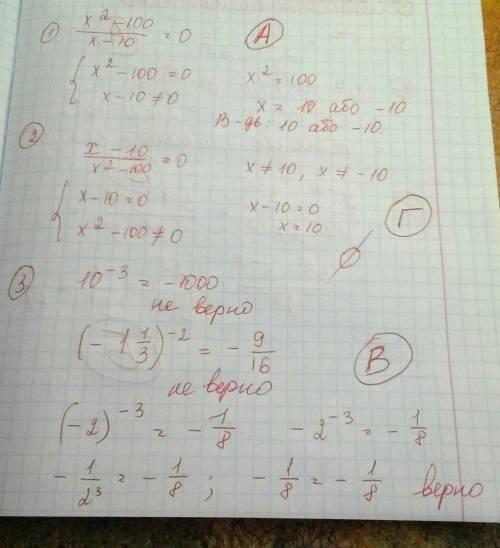 ① (x² - 100)/(x - 10) = 0 А
{ x² - 100 = 0 x² = 100
x - 10 ≠ 0 x = 10 або -10
В-дь: 10 або -10.
② (x - 10)/(x² - 100) = 0 x ≠ 10, x ≠ -10
{ x - 10 = 0 x - 10 = 0 Г
x² - 100 ≠ 0 x = 10
∅
③ 10⁻³ = -1000
не верно
(-1 1/3)⁻² = - 9/16 В
не верно
(-2)⁻³ = - 1/8 -2⁻³ = - 1/8
- 1/2³ = - 1/8 ; - 1/8 = - 1/8 верно